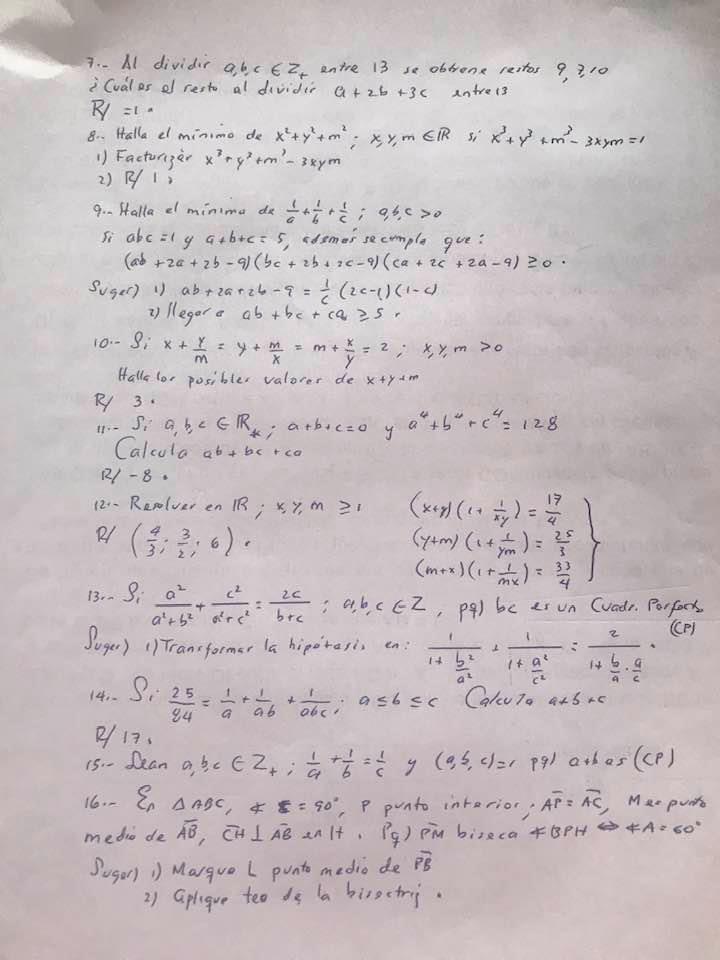 7.- Al dividir a,b,c ∈ Z₊ entre 13 se obtiene restos 9, 7, 10
¿Cuál es el resto al dividir a + 2b + 3c entre 13
R/ = 1.
8.- Halla el mínimo de x²+y²+m²; x,y,m ∈ IR si x³+y³+m³-3xym=1
1) Factorizar x³+y³+m³-3xym
2) R/ 1.
9.- Halla el mínimo de 1/a + 1/b + 1/c; a,b,c > 0
Si abc = 1 y a+b+c = 5, además se cumple que:
(ab + 2a + 2b - 9)(bc + 2b + 2c - 9)(ca + 2c + 2a - 9) ≥ 0.
Suger) 1) ab + 2a + 2b - 9 = 1/c (2c-1)(1-c)
2) llegar a ab + bc + ca ≥ 5.
10.- Si x + y/m = y + m/x = m + x/y = 2; x,y,m > 0
Halla los posibles valores de x+y+m
R/ 3.
11.- Si a,b,c ∈ IR*; a+b+c=0 y a⁴+b⁴+c⁴=128
Calcula ab+bc+ca
R/ -8.
12.- Resolver en IR; x,y,m ≥ 1 (x+y)(1 + 1/xy) = 17/4
R/ (4/3; 3/2; 6). (y+m)(1 + 1/ym) = 25/3
(m+x)(1 + 1/mx) = 33/4
13.- Si a²/a²+b² + c²/a²+c² = 2c/b+c; a,b,c ∈ Z, pq) bc es un Cuadr. Perfecto
(CP)
Suger) 1) Transformar la hipótesis en: 1/1+b²/a² + 1/1+a²/c² = 2/1+b/a·a/c.
14.- Si 25/84 = 1/a + 1/ab + 1/abc; a ≤ b ≤ c Calcula a+b+c
R/ 17.
15.- Sean a,b,c ∈ Z₊; 1/a + 1/b = 1/c y (a,b,c)=1 pq) a+b es (CP)
16.- En △ABC, ∢ = 90°, P punto interior; AP = AC, M es punto
medio de AB, CH ⊥ AB en H. Pq) PM biseca ∢BPH ⇔ ∢A = 60°
Suger) 1) Marque L punto medio de PB
2) Aplique teo de la bisectriz.